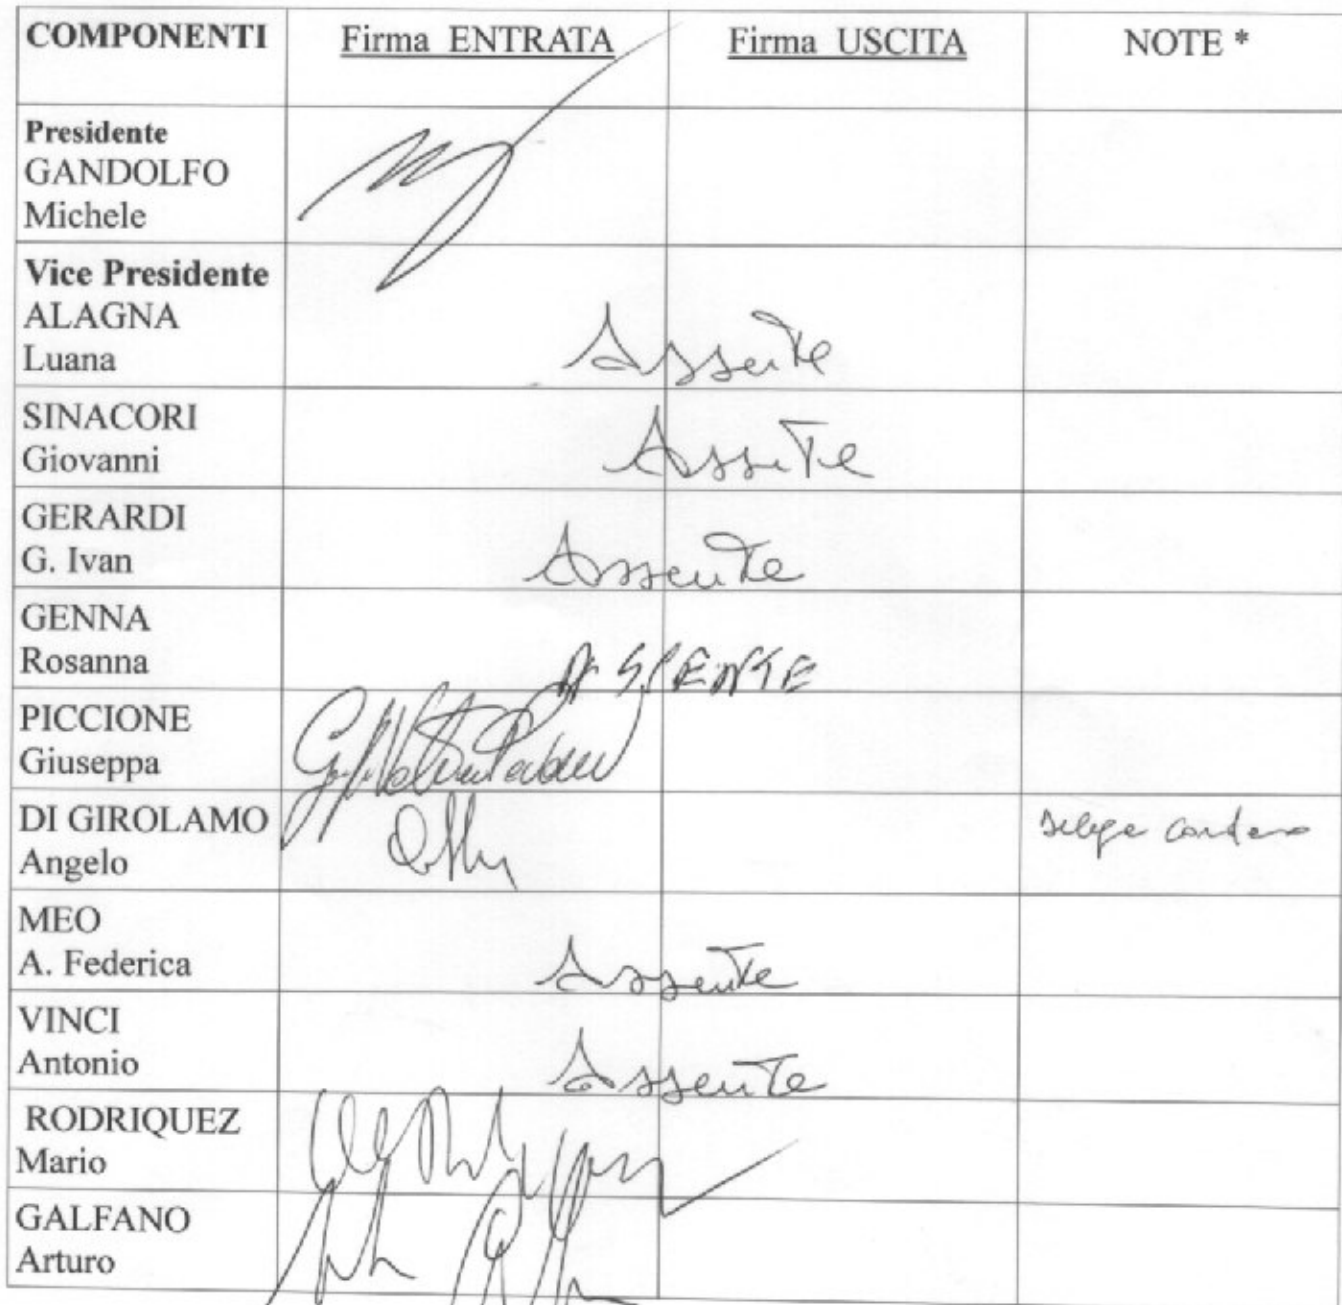 COMPONENTI Firma ENTRATA Firma USCITA NOTE *
Presidente
GANDOLFO
Michele
Vice Presidente
ALAGNA
Luana Assente
SINACORI
Giovanni Assente
GERARDI
G. Ivan Assente
GENNA
Rosanna ASSENTE
PICCIONE
Giuseppa
DI GIROLAMO
Angelo
MEO
A. Federica Assente
VINCI
Antonio Assente
RODRIQUEZ
Mario
GALFANO
Arturo